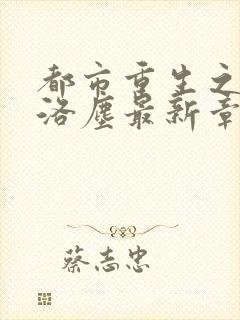 都市重生之
洛尘最新章
蔡志忠